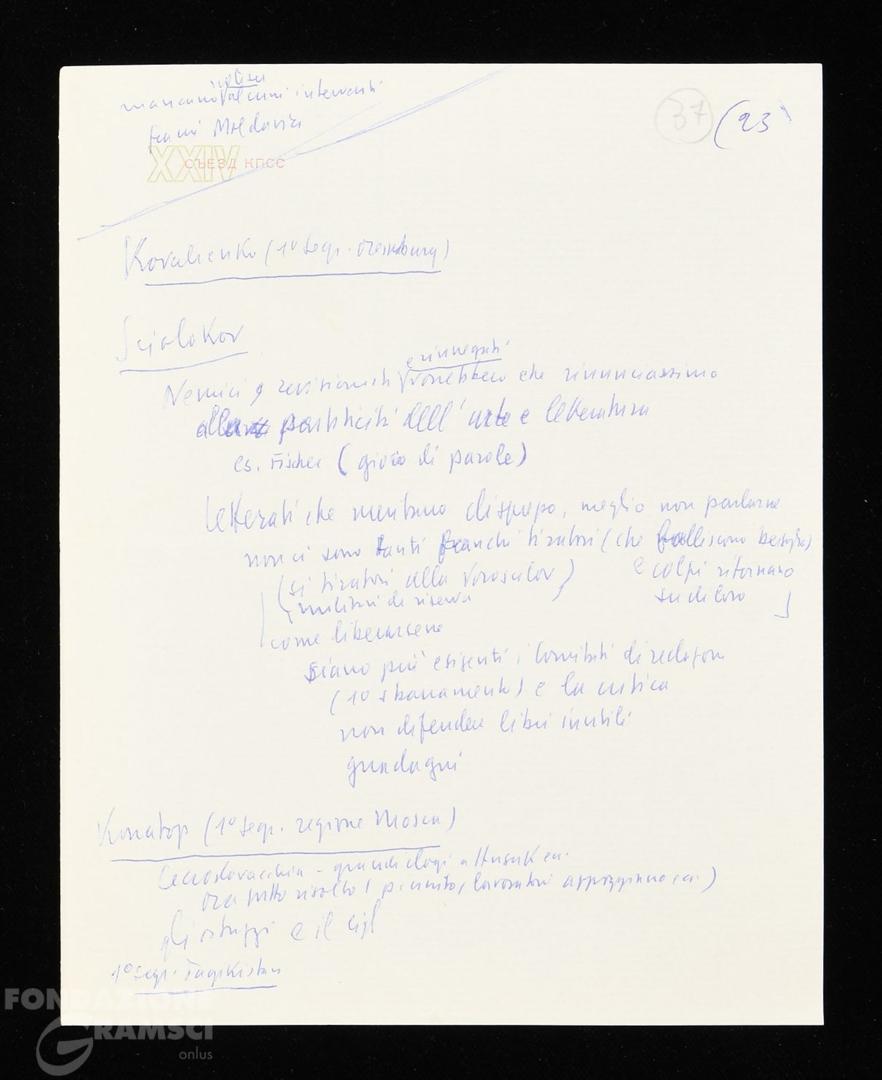 mancano alcuni interventi
Moldavia
37 (23
XXIV СЪЕЗД КПСС
Kovalienko (1° segr. Orenburg)
Sciolokov
rinnegati
Nemici, revisionisti e vorrebbero che rinunciassimo
alla partiticità dell'arte e letteratura
es. Fischer (gioco di parole)
Letterati che meritano disprezzo, meglio non parlarne
non ci sono tanti franchi tiratori (che falliscono bersaglio
(si tiratori alla Voroscilov) e colpi ritornano
militari di riserva su di loro
come liberarsene
siano più esigenti i Comitati di redazione
(1° sbarramento) e la critica
non difendere libri inutili
guadagni
Konatop (1° segr. regione Mosca)
Cecoslovacchia - grandi elogi a Husak ecc.
ora tutto risolto (partito, lavoratori appoggiano ecc.)
gli struzzi e il
1° segr. Tagikistan
FONDAZIONE
GRAMSCI
onlus